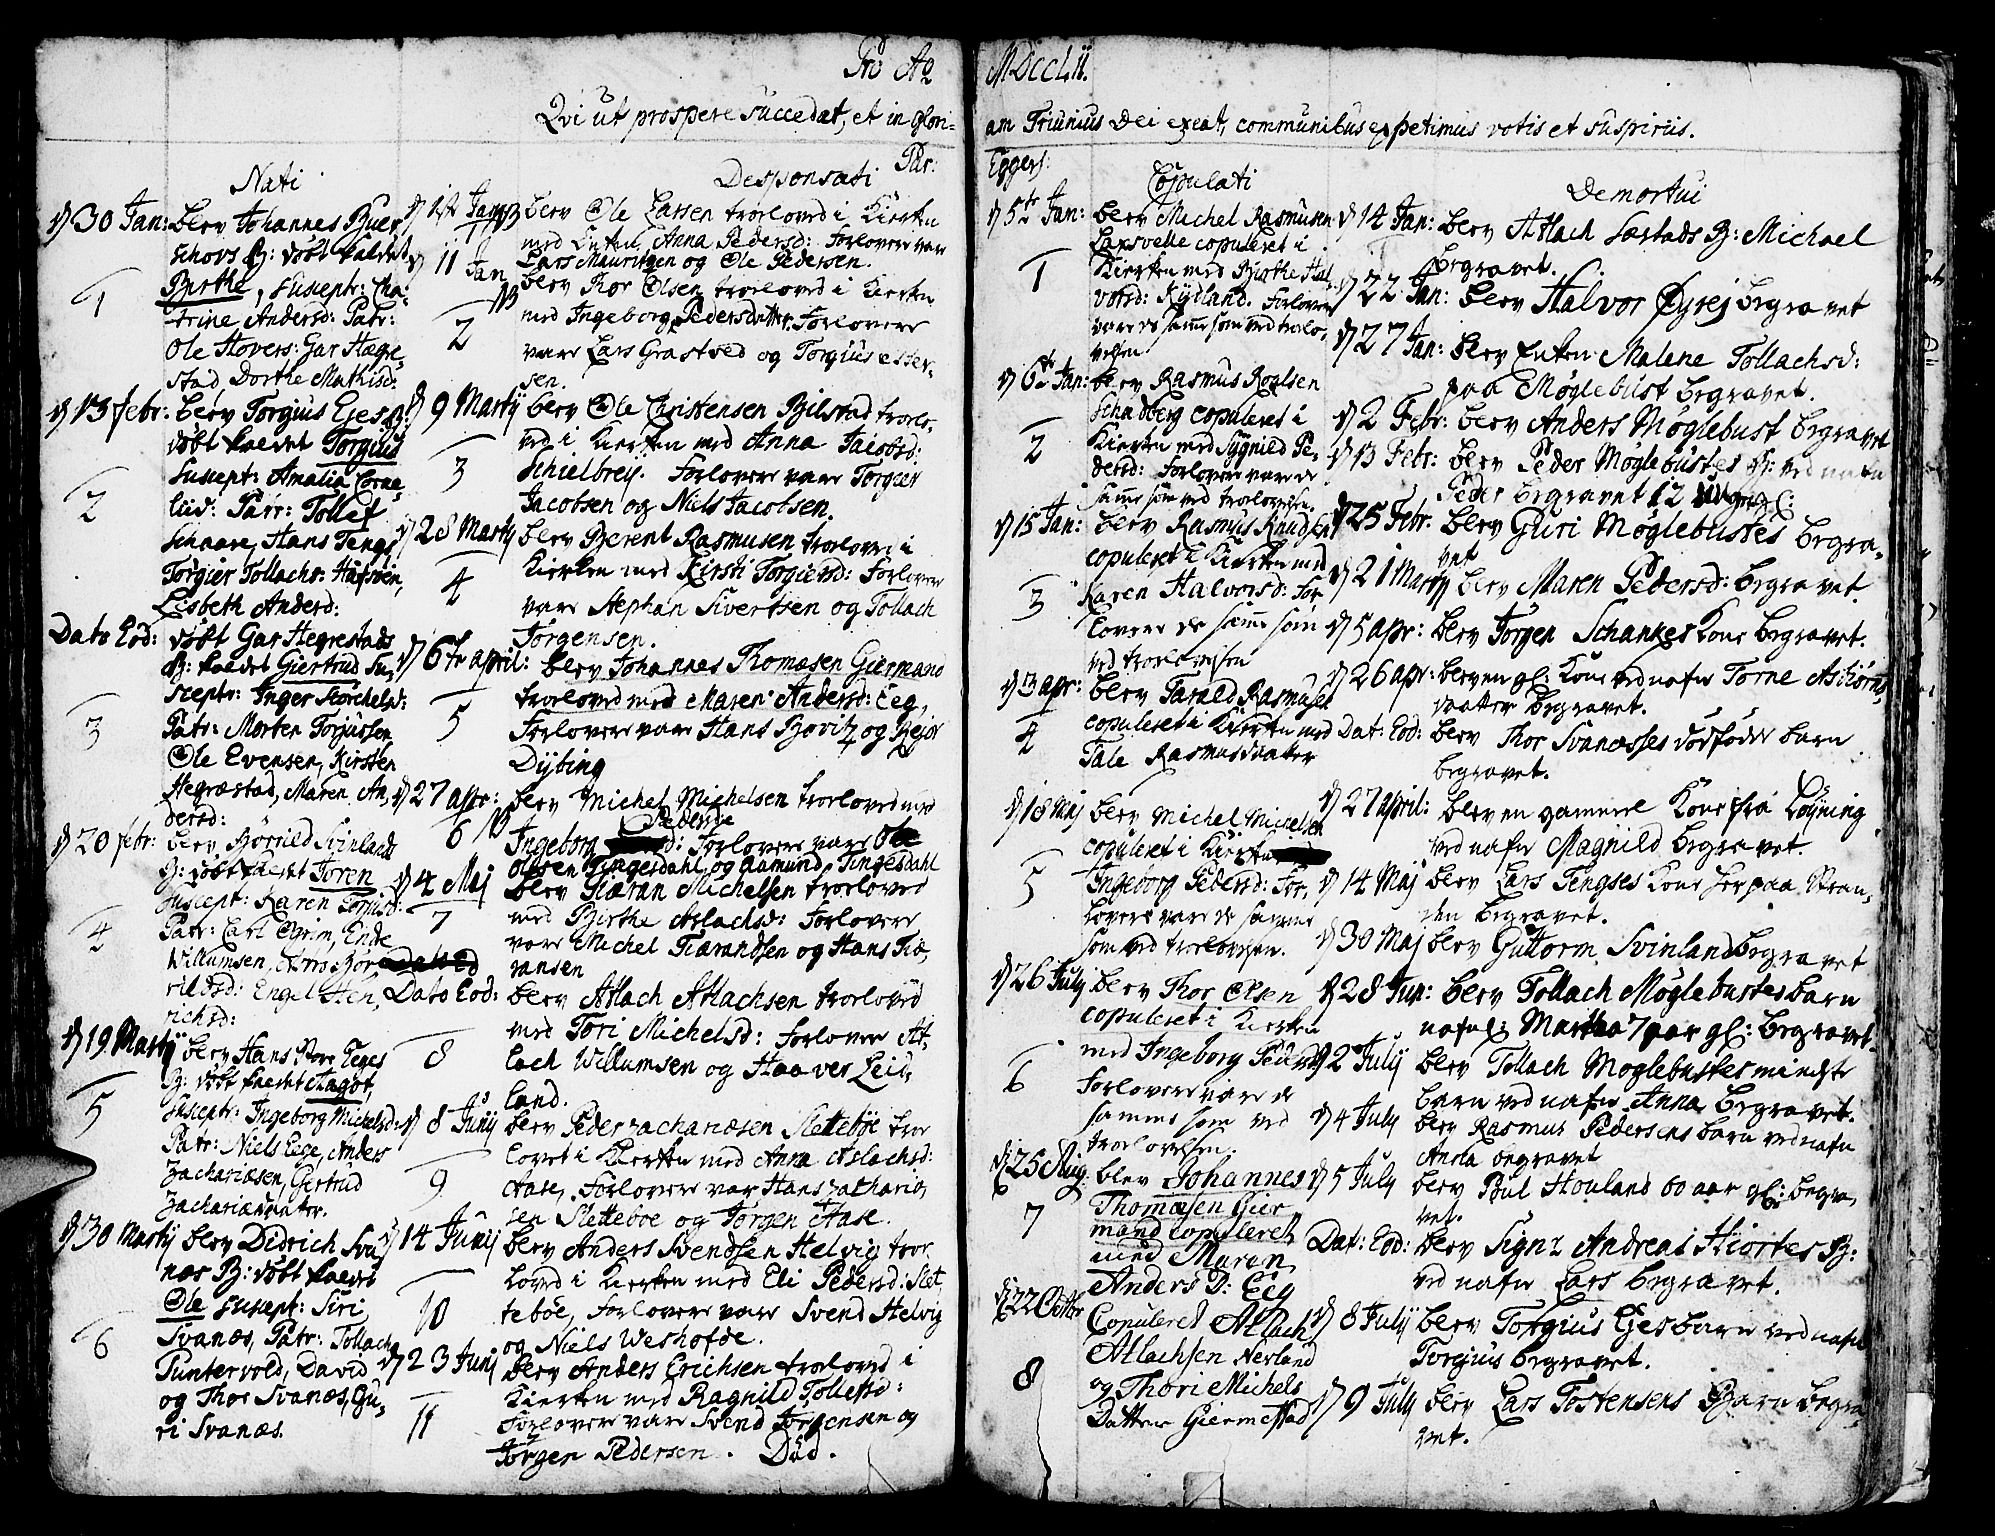 Pro Ao MDccLII.
Qvi ut prospere succedat, et in glori-
am Triunius Dei exeat, communibus expetimus votis et suspiriis.
Par: Eggers:
Nati
d 30 Jan: blev Johannes
schovs B: döbt kaldet
1 Birthe, Suscept: Cha-
trine Andersd: Patr:
Ole Stovers: Gar Hægre-
stad, Dorthe Mathisd:
d 13 febr: blev Torgius Eges B:
döbt kaldet Torgius
Suscept: Amalia Corne-
2 liid: Patr: Tollef
Schaare, Hans Tengs
Torgier Tollachs:
Lisbeth Andersd:
Dato Eod: döbt Gar Hegrestads
B: kaldet Giertrud Su-
scept: Inger Storchelsd:
3 Patr: Morten Torjussen
Ole Evensen, Kirsten
Hegræstad, Maren An-
dersd:
d 20 febr: blev Svinlands
B: döbt kaldet Joren
Suscept: Karen Torjusd:
4 Patr: Carl Grim, Ende
Willumsen,
rildsd: Engel Hen-
richsd:
d 19 Martij blev Hans Pore Eeges
B: döbt kaldet Aagot,
5 Suscept: Ingeborg Michelsd:
Patr: Niels Eege, Anders
Zachariæsen, Giertrud
Zachariædaatter.
d 30 Martij blev Didrich Sva-
næs B: döbt kaldet
Ole Suscept: Siri
6 Svanæs, Patr: Tollach
Puntervold, David
og Thor Svanæs, Gu-
ri Svanæs.
Desponsati
d 1st Jan blev Ole Larsen trolovede i Kierken
1 NB med Enken Anna Pedersd: Forlovere var
Lars Mauritzen og Ole Pedersen.
d 11 Jan blev Roer Olsen trolovede i Kierken
2 NB med Ingeborg Pedersdatter. Forlovere
vare Lars Grastved og Torgius Asser-
sen.
d 9 Martij blev Ole Christensen Bilstad trolo-
ved i Kierken med Anna Jacobsd:
3 Schielbrey. Forlovere vare Torgier
Jacobsen og Niels Jacobsen.
d 28 Martij blev Berent Rasmusen trolovet i
4 Kierken med Kirsti Torgiersd: Forlovere
vare Stephan Sivertsen og Tollach
Jörgensen.
d 6te april: blev Johannes Thomæsen Giermand
trolovede med Maren Andersd: Eeg,
5 Forlovere vare Hans Bovitz og Bejer
Dÿbing
d 27 apr: blev Michel Michelsen trolovede med
6 NB Ingeborg Peders d: Forlovere vare Ole
Olssen Tingesdahl og Aamund Tingesdahl
d 4 Maj blev Giæran Michelsen trolovede
7 med Birthe Aslachsd: Forlovere
vare Michel Tiærandsen og Hans Tiæ-
ransen
Dato Eod: blev Atlach Atlachsen trolovede
med Tori Michelsd: Forlovere At-
8 lach Willumsen og Haaver Leid-
land.
d 8 Junij blev Peder Zachariæsen Slettebøe tro-
lovet i Kierken med Anna Aslachsd:
9 Aase, Forlovere var Hans Zacharia-
sen Sletteboe og Jørgen Aase.
d 14 Junij blev Anders Svendsen Helvig tro-
loved i Kierken med Eli Pedersd: Slet-
10 tebøe, Forlovere vare Svend Helvig
og Niels Weshofde.
d 23 Junij blev Anders Erichsen trolovede i
Kierken med Ragnild Tollefsd:
11 Forlovere vare Svend Jørgensen og
Jørgen Pedersen. Död.
Copulati
d 5te Jan: blev Michel Rasmusen
Laxvelle copuleret i
1 Kierken med Birthe Hal-
vorsd: Rydland. Forlovere
vare de samme som ved trolo-
velsen
d 6te Jan: blev Rasmus Roalsen
Schadberg copuleret i
2 Kierken med Sygnild Pe-
dersd: Forlovere vare de
samme som ved trolovelsen.
d 15 Jan: blev Rasmus Knudsen
copuleret i Kierken med
3 Karen Halvorsd: For-
lovere de samme som
ved trolovelsen
d 3 apr: blev Tarald Rasmusen
4 copuleret i Kierken med
Tale Rasmusdaatter
d 18 Maj blev Michel Michelsen
copuleret i Kierken
5 Ingeborg Pedersd: For-
lovere vare de samme
som ved trolovelsen.
d 26 July blev Thor Olsen
copuleret i Kierken
med Ingeborg Pedersd:
6 Forlovere vare de
samme som ved
trolovelsen.
d 25 Aug blev Johannes
7 Thomæsen Gier
mand copuleret
med Maren
Anders D: Eeg
d 22 Octbr Copuleret Atlach
Atlachsen Nerland
8 og Thori Michels
Datter Giermestad
Demortui
d 14 Jan: blev Atlach Sæstads B: Michael
begravet.
d 22 Jan: blev Halvor Øyrej begravet
d 27 Jan: blev Enken Malene Tollachsd:
paa Møglebust begravet.
d 2 Febr: blev Anders Møglebust begravet
d 13 Febr: blev Peder Møglebustes B: ved nafn
Peder begravet 12 gl:
d 25 Febr. blev Guri Møglebustes begra-
vet
d 21 Martij blev Maren Pedersd: begravet.
d 5 apr: blev Jørgen Schankes Kone begravet.
d 26 apr: blev en gl: Kone ved nafn Torne Asbiørns-
daatter begravet.
Dat: Eod: blev Thor Svanæsses dödföder barn
begravet.
d 27 april: blev en gammel Kone fra Løyning
ved nafn Magnild begravet.
d 14 Maj blev Lars Tengses Kone her paa Stran-
den begravet.
d 30 Maj blev Guttorm Svinland begravet
d 28 Jun: blev Tollach Møglebustes barn
nafnl: Martha 7 aar gl: begravet
d 2 Julij blev Tollach Moglebustes mindste
barn ved nafn Anna begravet.
d 4 July blev Rasmus Pedersens barn ved nafn
Anola begravet
d 5 July blev Poul Houland 60 aar gl: begra-
vet.
Dat: Eod: blev Signr Andreas Hiortes B:
ved nafn Lars begravet.
d 8 Julij blev Torgius Eges barn ved nafn
Torgius begravet.
d 9 July blev Lars Tostensens Barn begra-
vet.